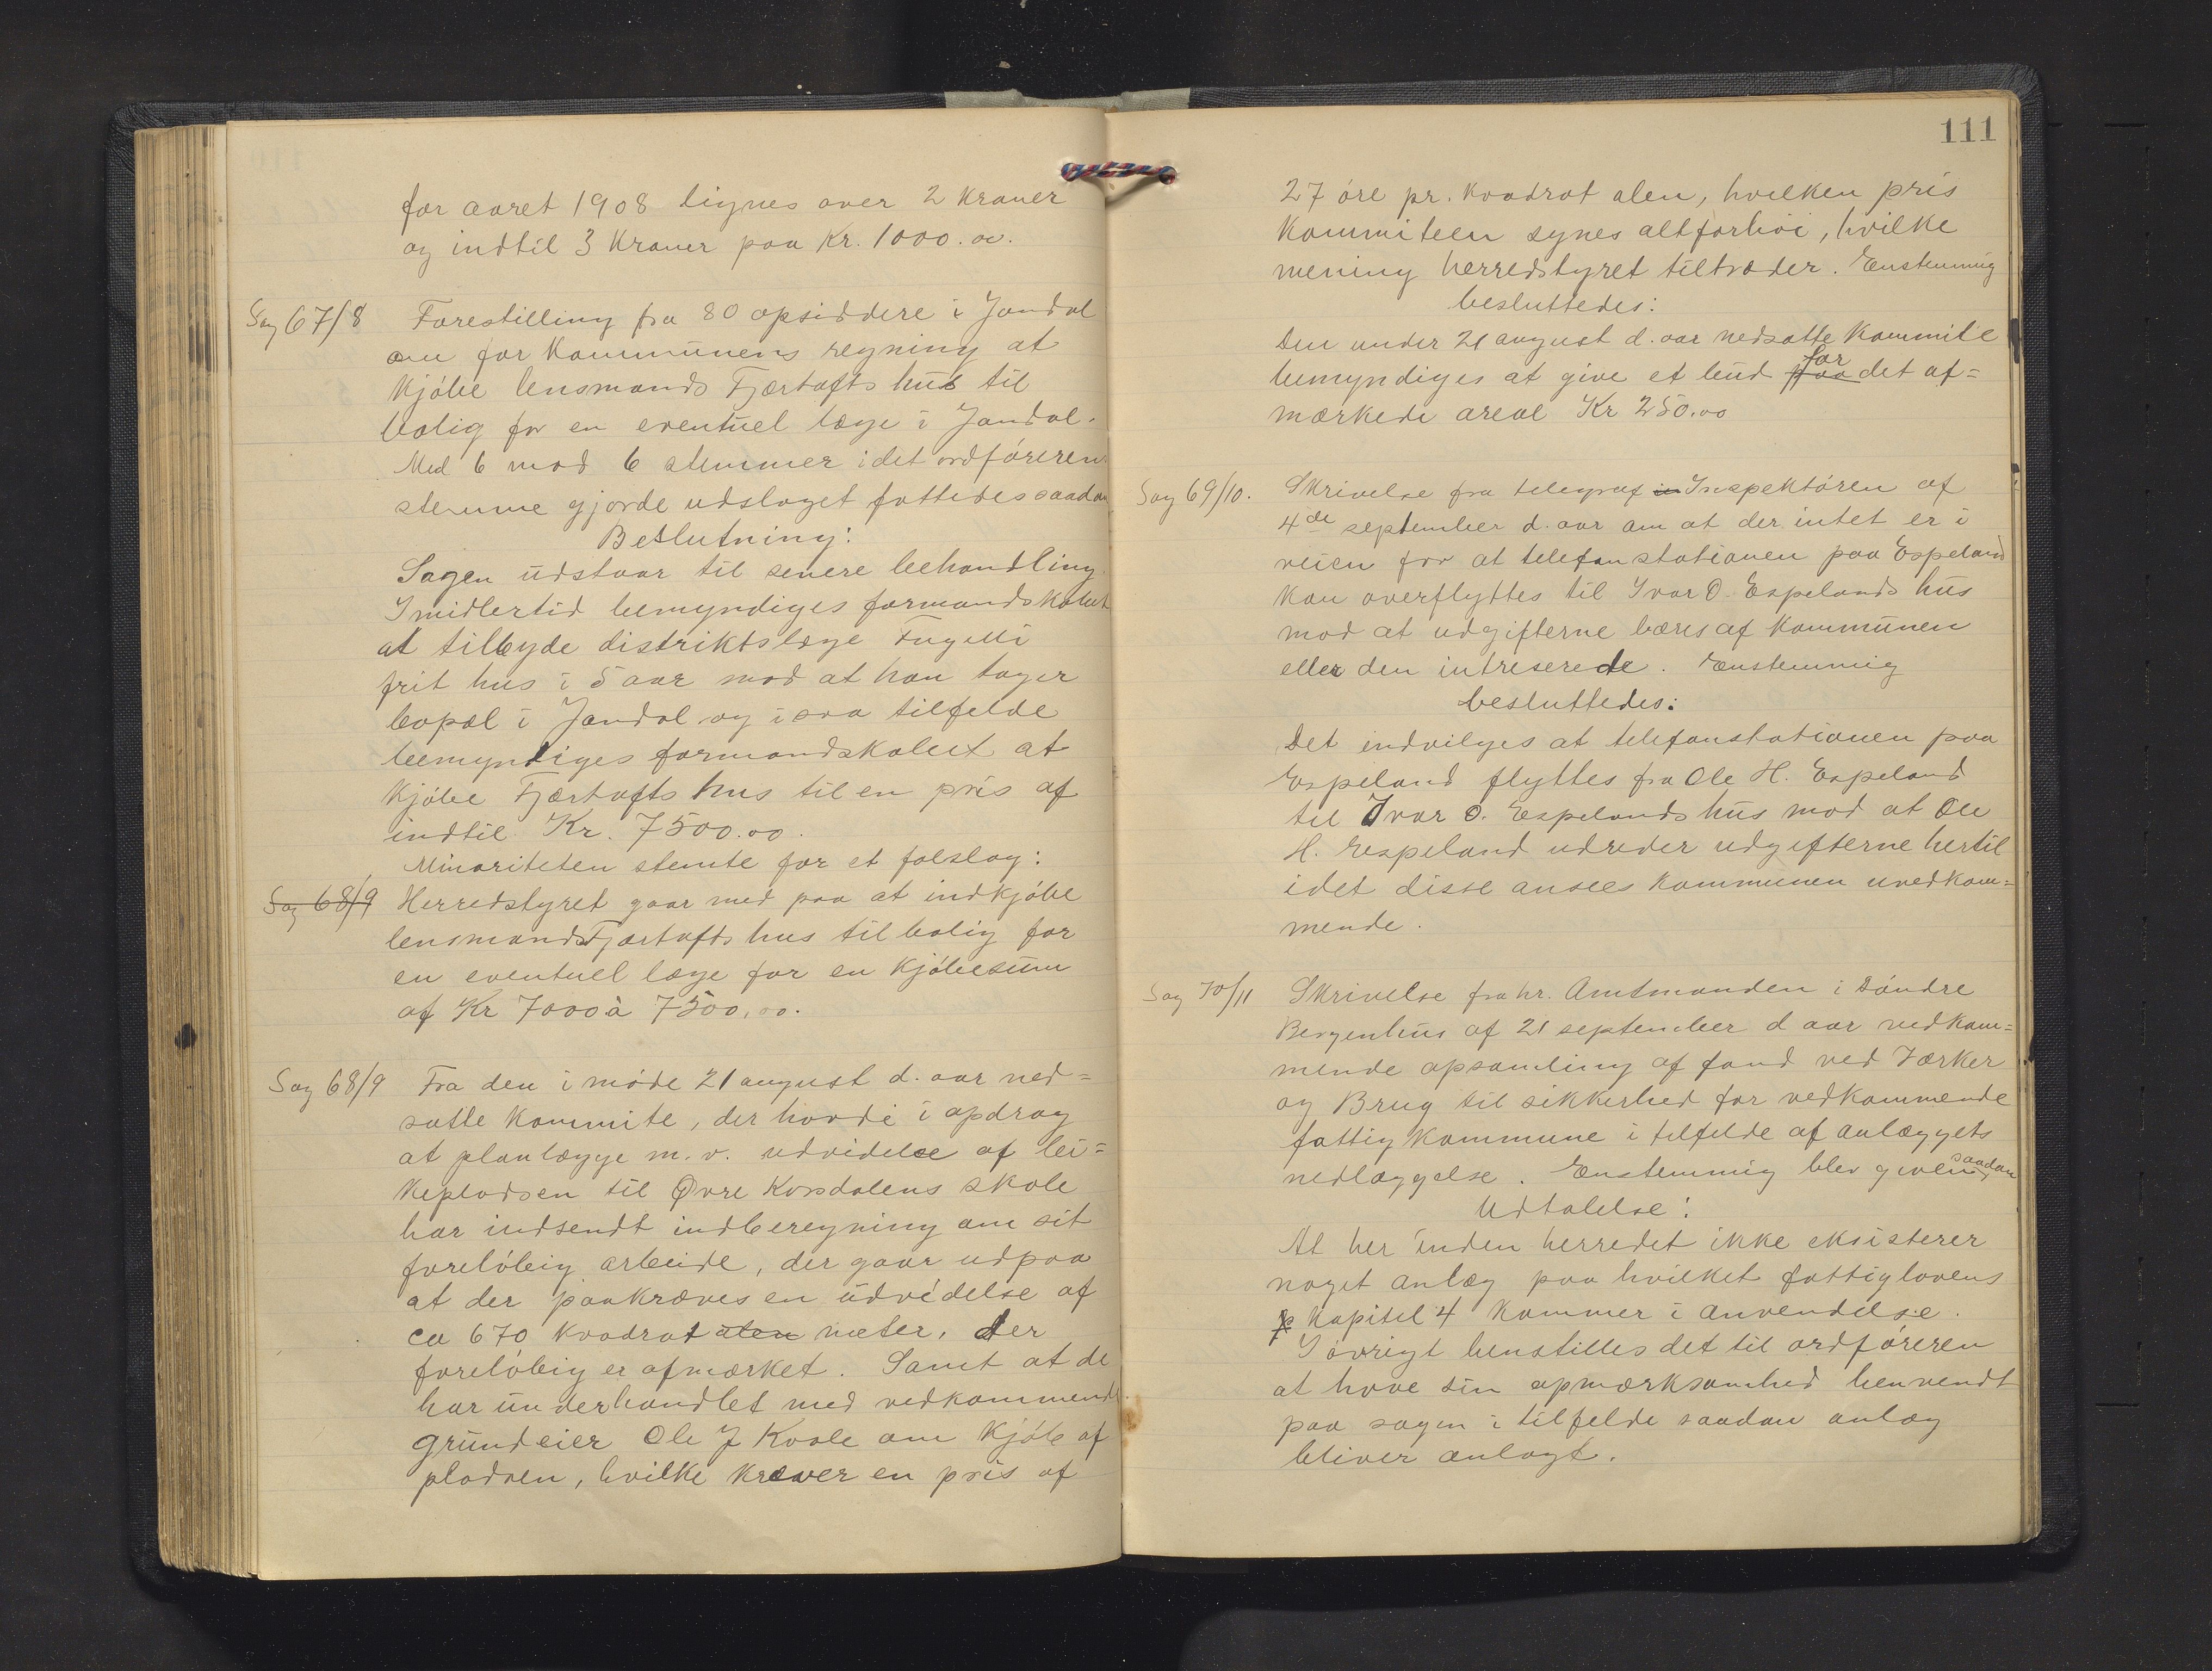 for aaret 1908 lignes over 2 kroner
og indtil 3 Kroner paa Kr. 1000.00.
Sag 67/8 Forestilling fra 80 opsiddere i Jondal
om for Kommunens regning at
Kjøbe lensmands Fjærtofts hus til
bolig for en eventuel læge i Jondal.
Med 6 mod 6 stemmer idet ordførerens
stemme gjorde udslaget fattedes saadan
Beslutning:
Sagen udstaar til senere behandling.
Imidlertid bemyndiges formandskabet
at tilbyde distriktslæge Fugelli
frit hus i 5 aar mod at han tager
bopæl i Jondal og i saa tilfelde
bemyndiges formandskabet at
Kjøbe Fjærtofts hus til en pris af
indtil Kr. 7500.00.
Minoriteten stemte for et folslag:
Sag 68/9 Herredstyret gaar med paa at indkjøbe
lensmands Fjærtofts hus til bolig for
en eventuel læge for en Kjøbesum
af Kr 7000 à 7500,00.
Sag 68/9 Fra den i møde 21 august d. aar ned=
satte Kommite, der havde i opdrag
at planlægge m.v. udvidelse af lei=
kepladsen til Øvre Krosdalens skole
har indsendt indberegning om sit
foreløbig arbeide, der gaar ud paa
at der paakræves en udvidelse af
ca 670 kvadrat alen meter, der
foreløbig er afmærket. Samt at de
har underhandlet med vedkommende
grundeier Ole J Kvale om Kjøb af
pladsen, hvilke kræver en pris af
111
27 øre pr. kvadrat alen, hvilken pris
Kommiteen synes altforhøi, hvilke
mening herredstyret tiltræder. Enstemmig
besluttedes:
Den under 21 august d. aar nedsatte Kommite
for
bemyndiges at give et bud paa det af=
mærkede areal Kr 250.00
Sag 69/10. Skrivelse fra telegraf in Inspektøren af
4de september d. aar om at der intet er i
veien for at telefonstationen paa Espeland
kan overflyttes til Ivar O. Espelands hus
mod at udgifterne bæres af Kommunen
eller den intreserede. Enstemmig
besluttedes:
Det indvilges at telefonstationen paa
Espeland flyttes fra Ole H. Espeland
til Ivar O. Espelands hus mod at Ole
H. Espeland udreder udgifterne hertil
idet disse ansees Kommunen uvedkom=
mende.
Sag 70/11 Skrivelse fra hr. Amtmanden i Søndre
Bergenhus af 21 september d aar vedkom=
mende opsamling af fond ved Værker
og Brug til sikkerhed for vedkommende
fattigkommune i tilfelde af anlæggets
nedlæggelse. Enstemmig blev given saadan
Udtalelse:
At her inden herredet ikke eksisterer
noget anlæg paa hvilket fattiglovens
p Kapitel 4 kommer i anvendelse.
I øvrigt henstilles det til ordføreren
at have sin opmærksomhed henvendt
paa sagen i tilfelde saadan anlæg
bliver anlagt.